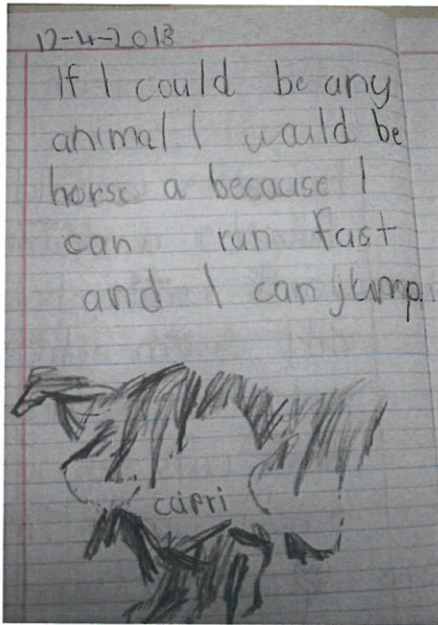 12-4-2018
If I could be any
animal I would be
horse a because I
can run fast
and I can jump.
capri